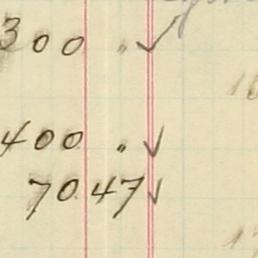 300 " ✓
400 " ✓
70 47 ✓